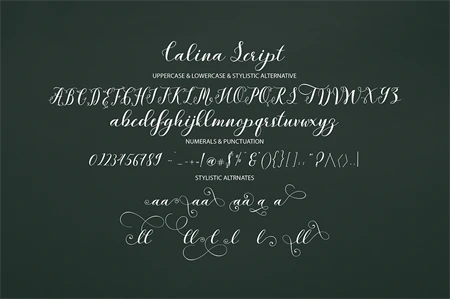 Calina Script
UPPERCASE & LOWERCASE & STYLISTIC ALTERNATIVE
ABCDEFGHIJKLMNOPQRSTUVWXYZ
abcdefghijklmnopqrstuvwxyz
NUMERALS & PUNCTUATION
0123456789
STYLISTIC ALTRNATES
aa aa aa a a
ll ll l l l ll